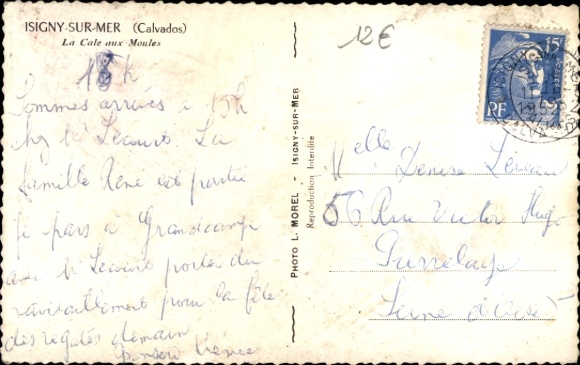 ISIGNY-SUR-MER (Calvados)
La Cale aux Moules
12€
18h
Sommes arrivés à 15h
chez Mr Lecourt. La
famille René est partie
je pars à Grandcamp
avec Mr Lecourt porter du
ravitaillement pour la fête
des régates demain
PHOTO L. MOREL - ISIGNY-SUR-MER
Reproduction Interdite
15F
POSTES
RF
Melle Denise
56 Rue Victor Hugo
Pierrelaye
Seine et Oise